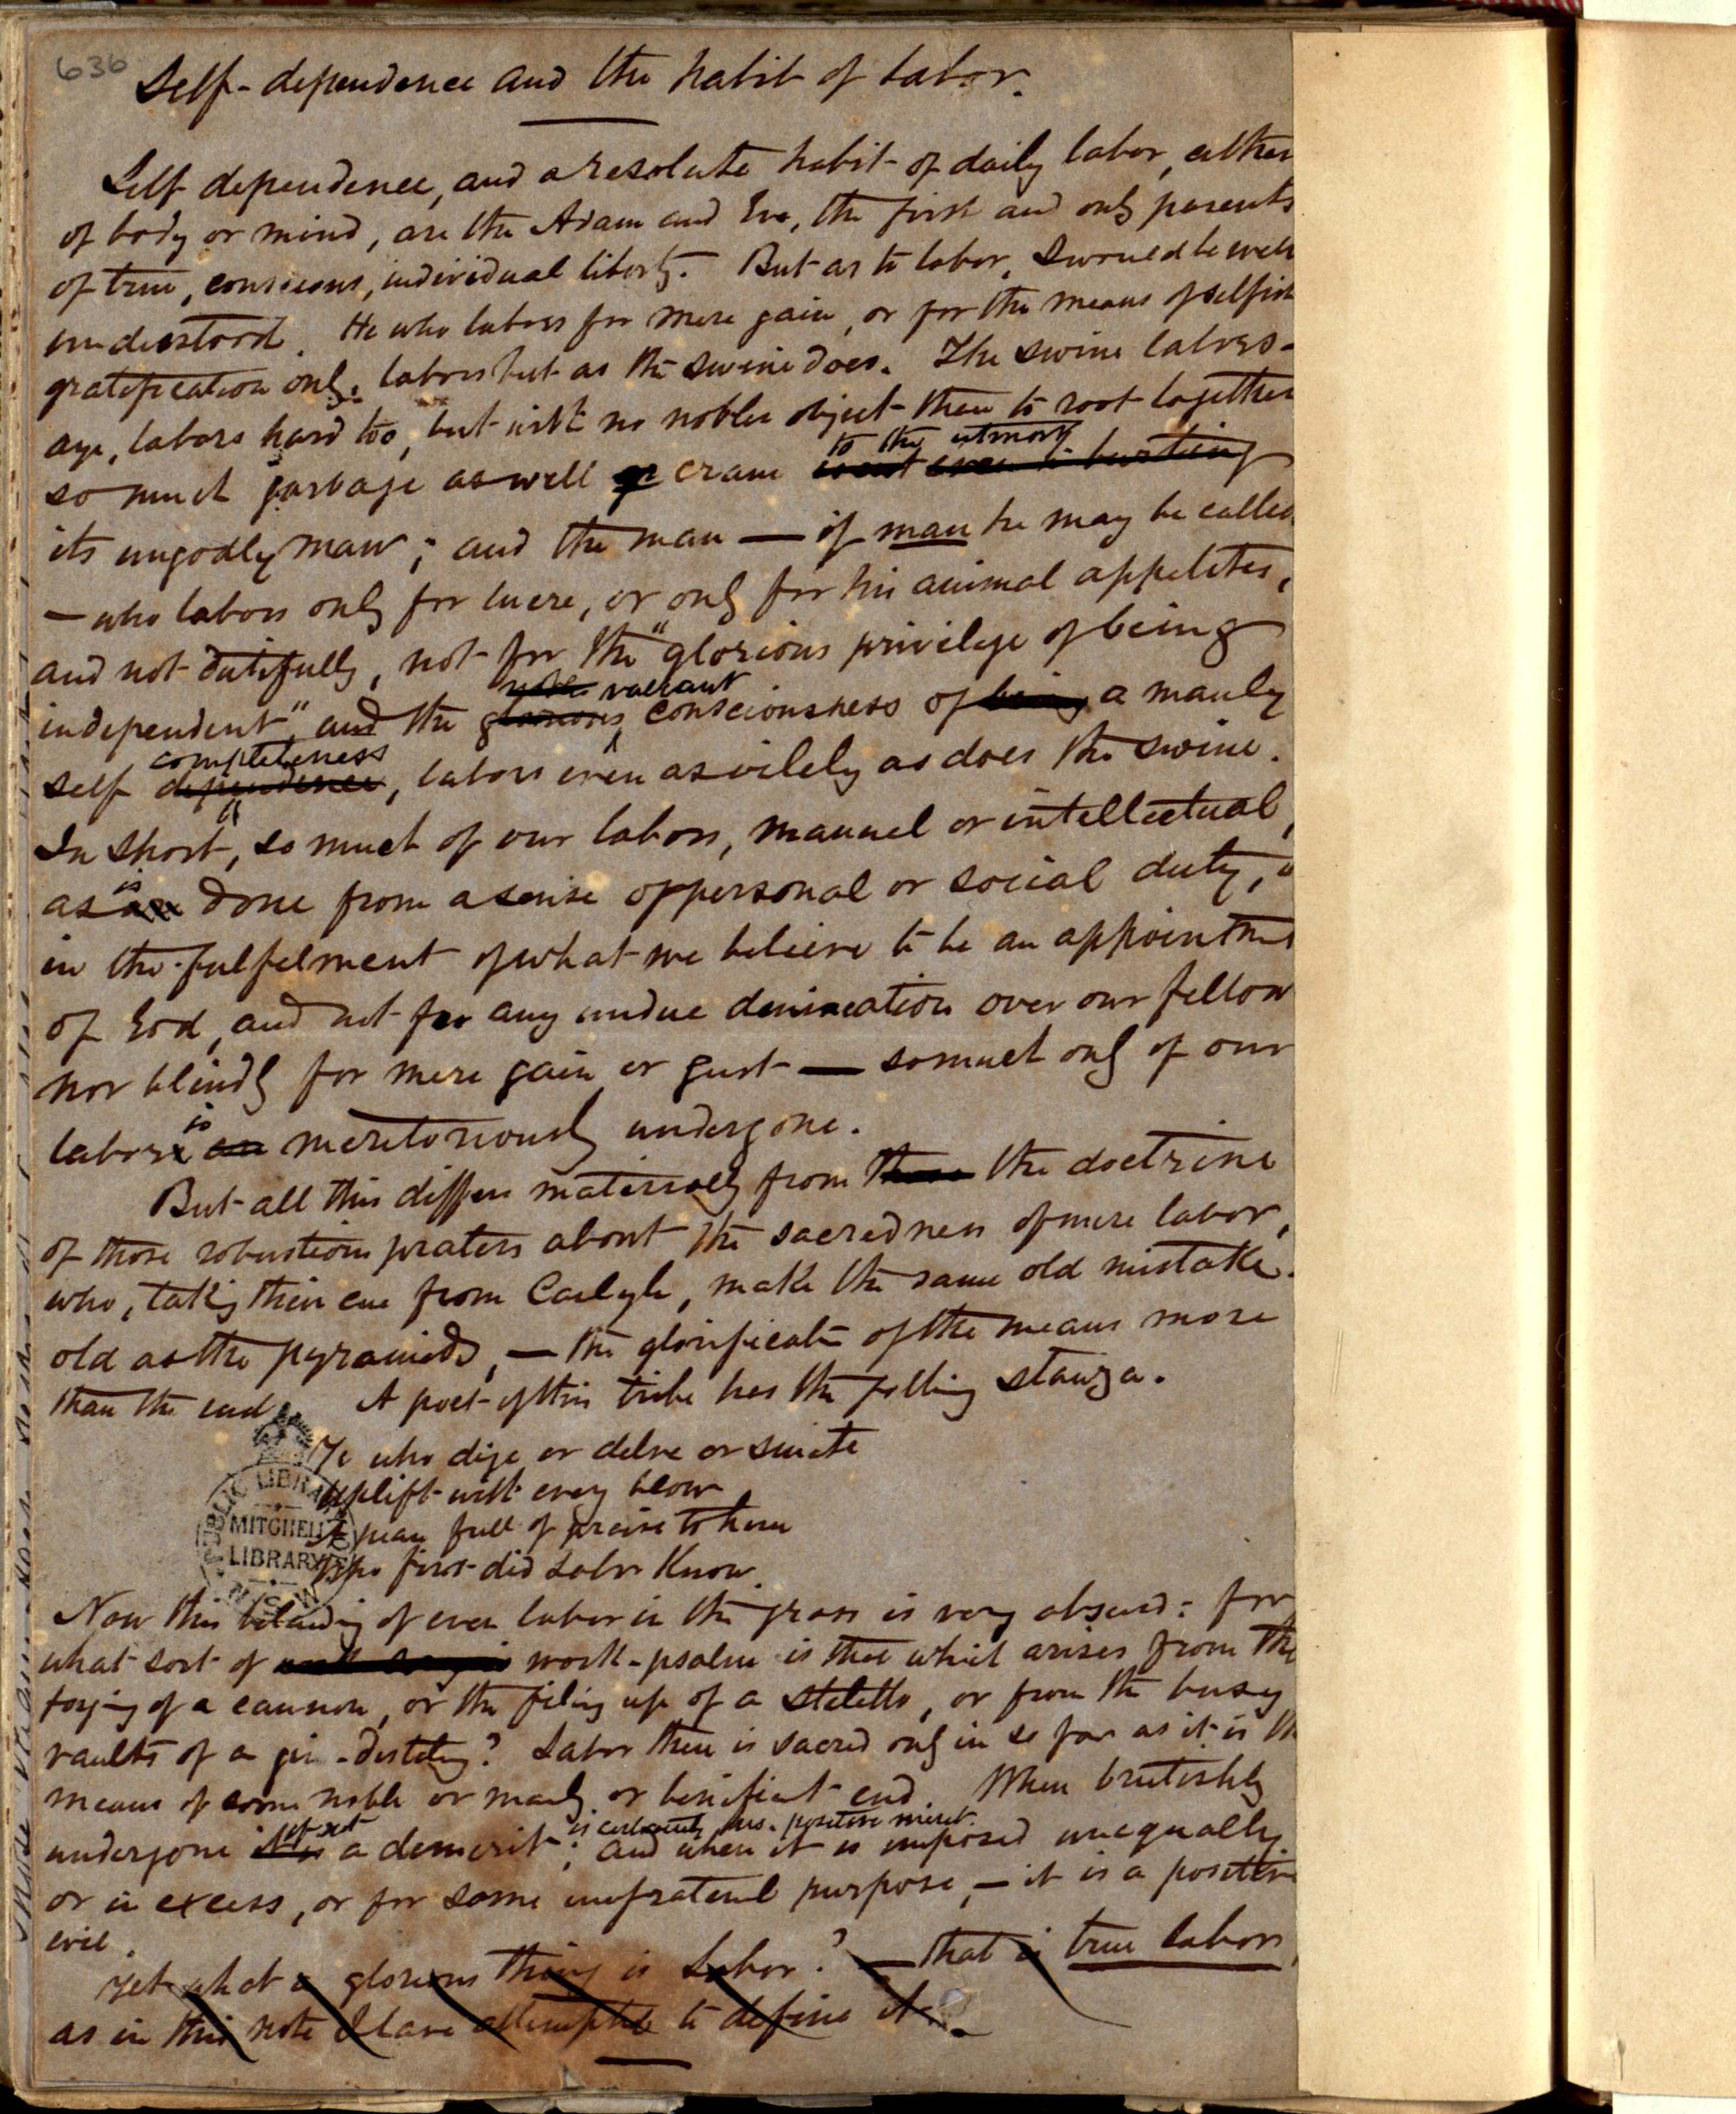 636
Self-dependence and the habit of labor.
Self dependence, and a resolute habit of daily labor, either
of body or mind, are the Adam and Eve, the first and only parents
of true, conscious, individual liberty. But as to labor, I would be well
understood. He who labors for mere gain, or for the means of selfish
gratification only, labors but as the swine does. The swine labors –
aye, labors hard too, but with no nobler object than to root together
to the utmost
so much garbage as well cram even to bursting
its ungodly maw; and the man — if man he may be called
— who labors only for lucre, or only for his animal appetites,
and not dutifully, not for the "glorious privilege of being
noble valiant
independent", and the glorious consciousness of being a manly
completeness
self dependence, labors even as vilely as does the swine.
In short, so much of our labors, manual or intellectual,
is
as are done from a sense of personal or social duty,
in the fulfelment of what we believe to be an appointment
of God, and not for any undue domination over our fellow
nor blindly for mere gain or gust — so much only of our
is
labors are meritoriously undergone.
But all this differs materially from those the doctrine
of those robustious praters about the sacredness of mere labor,
who, taking their cue from Carlyle, make the same old mistake.
old as the pyramids, — the glorification of the means more
than the end. A poet of this tribe has the folling stanza.
Ye who dige or delve or smite
Uplift with every blow
A pean full of praise to him
Who first did Labor Know.
PUBLIC LIBRARY
MITCHELL
LIBRARY
N.S.W.
Now this belauding of even labor in the gross is very absurd: for
what sort of work-psalm is that which arises from the
forging of a cannon, or the filing up of a stiletto, or from the busy
vaults of a gin-distilery? Labor then is sacred only in so far as it is the
means of some noble or manly or beneficient end. When brutishly
is certainly positive merit.
undergone it is a demerit; and when it is imposed unequally
or in excess, or for some unfraternal purpose, — it is a positive
evil.
Yet what a glorious thing is Labor? — that is true labor,
as in this note I have attempted to define it.